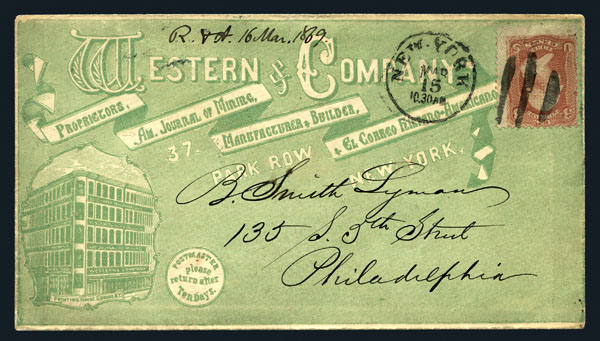 R. & A. 16 Mar. 1869.
WESTERN & COMPANY,
PROPRIETORS,
AM. JOURNAL OF MINING,
MANUFACTURER & BUILDER,
& EL CORREO HISPANO-AMERICANO
37. PARK ROW NEW YORK.
NEW-YORK
MAR
15
10.30 AM
B. Smith Lyman
135 S. 5th Street
Philadelphia
POSTMASTER
please
return after
Ten Days.